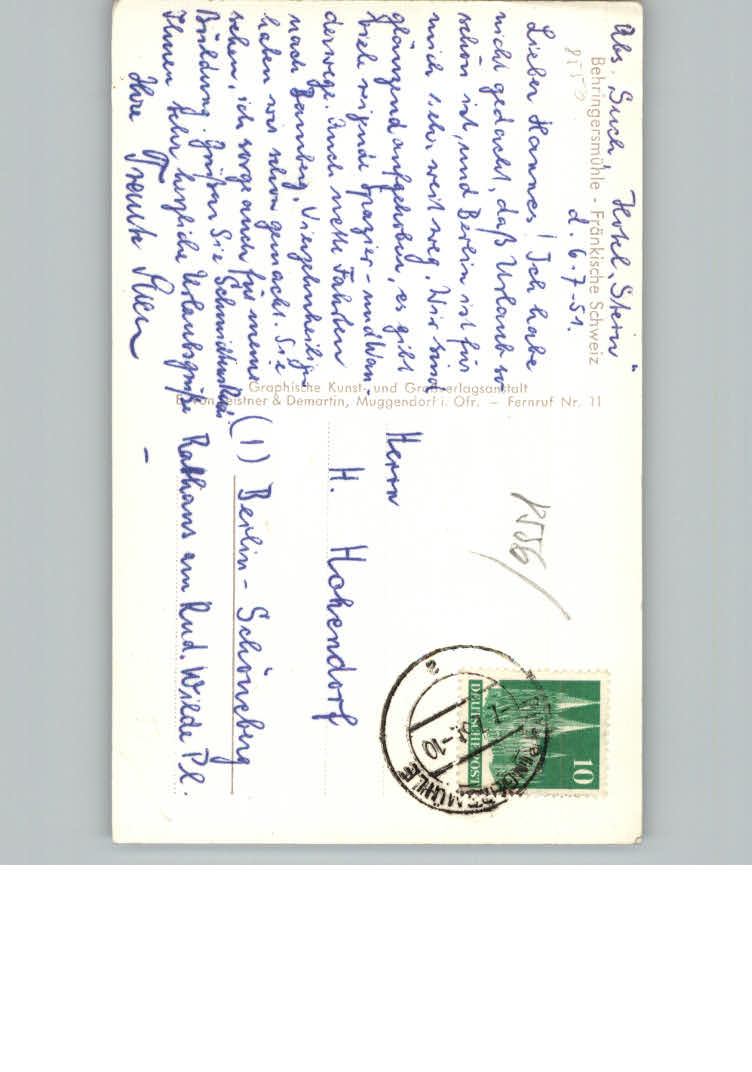 Abs. Such Hotel „Stern"
Behringersmühle - Fränkische Schweiz
d. 6.7.51.
Lieber Hannes! Ich habe
nicht gedacht, daß Urlaub so
schön ist, und Berlin ist für
mich sehr weit weg. Wir sind
glänzend aufgehoben, es gibt
viel Spazier- und Wan
derwege. Auch nette Fahrten
nach Bamberg, Vierzehnheiligen
haben wir schon gemacht. Sie
sehen, ich sorge auch für meine
Bildung. Grüßen Sie
Ihnen sehr herzliche Urlaubsgrüße
Ihre
Graphische Kunst- und Großverlagsanstalt
Leistner & Demartin, Muggendorf i. Ofr. — Fernruf Nr. 11
Herrn
H. Hohendorf
(1) Berlin-Schöneberg
Rathaus am Rud. Wilde Pl.
1556
DEUTSCHE POST
10